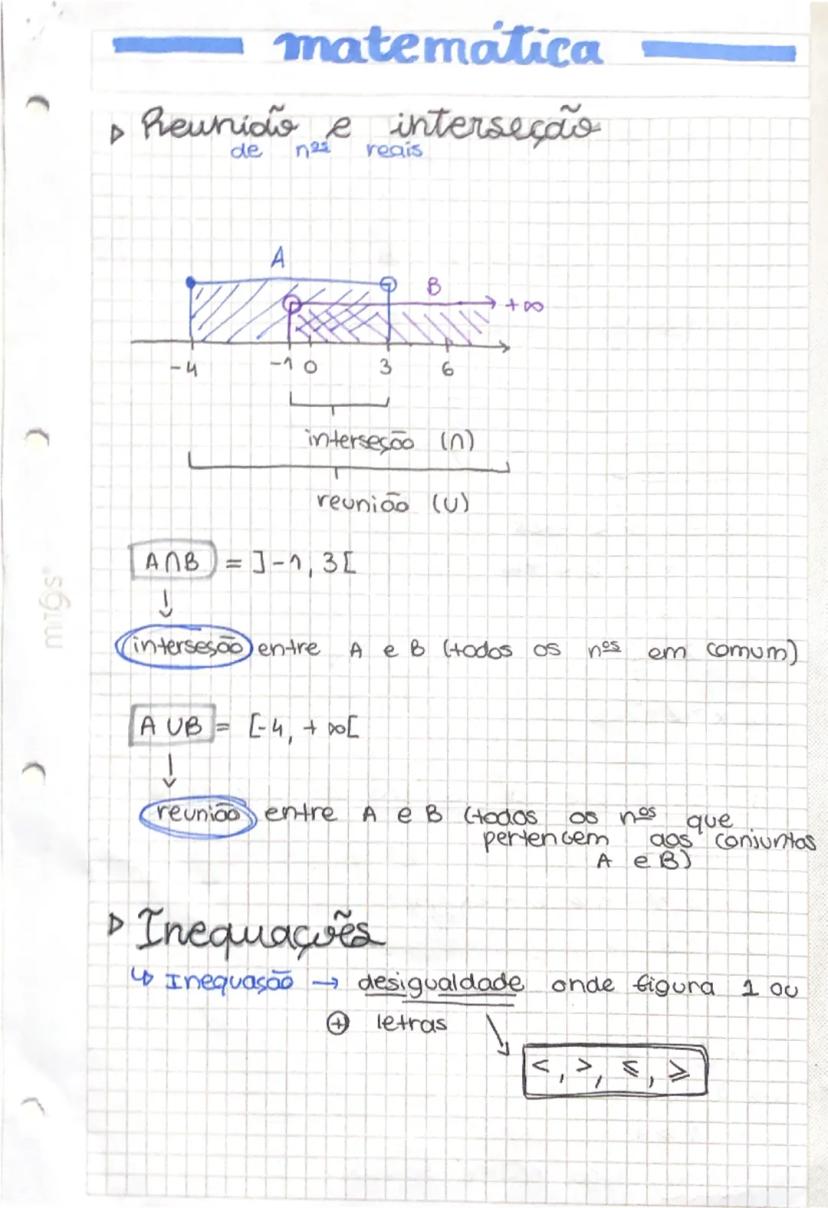 matemática
▷ Reunião e interseção
de nºs reais
A
B
+∞
-4 -1 0 3 6
interseção (∩)
reunião (∪)
A∩B = ]-1, 3[
↓
interseção entre A e B (todos os nºs em comum)
A∪B = [-4, +∞[
↓
reunião entre A e B (todos os nºs que
pertencem aos conjuntos
A e B)
▷ Inequações
↳ Inequação → desigualdade onde figura 1 ou
⊕ letras
<, >, ⩽, ⩾
mi6s